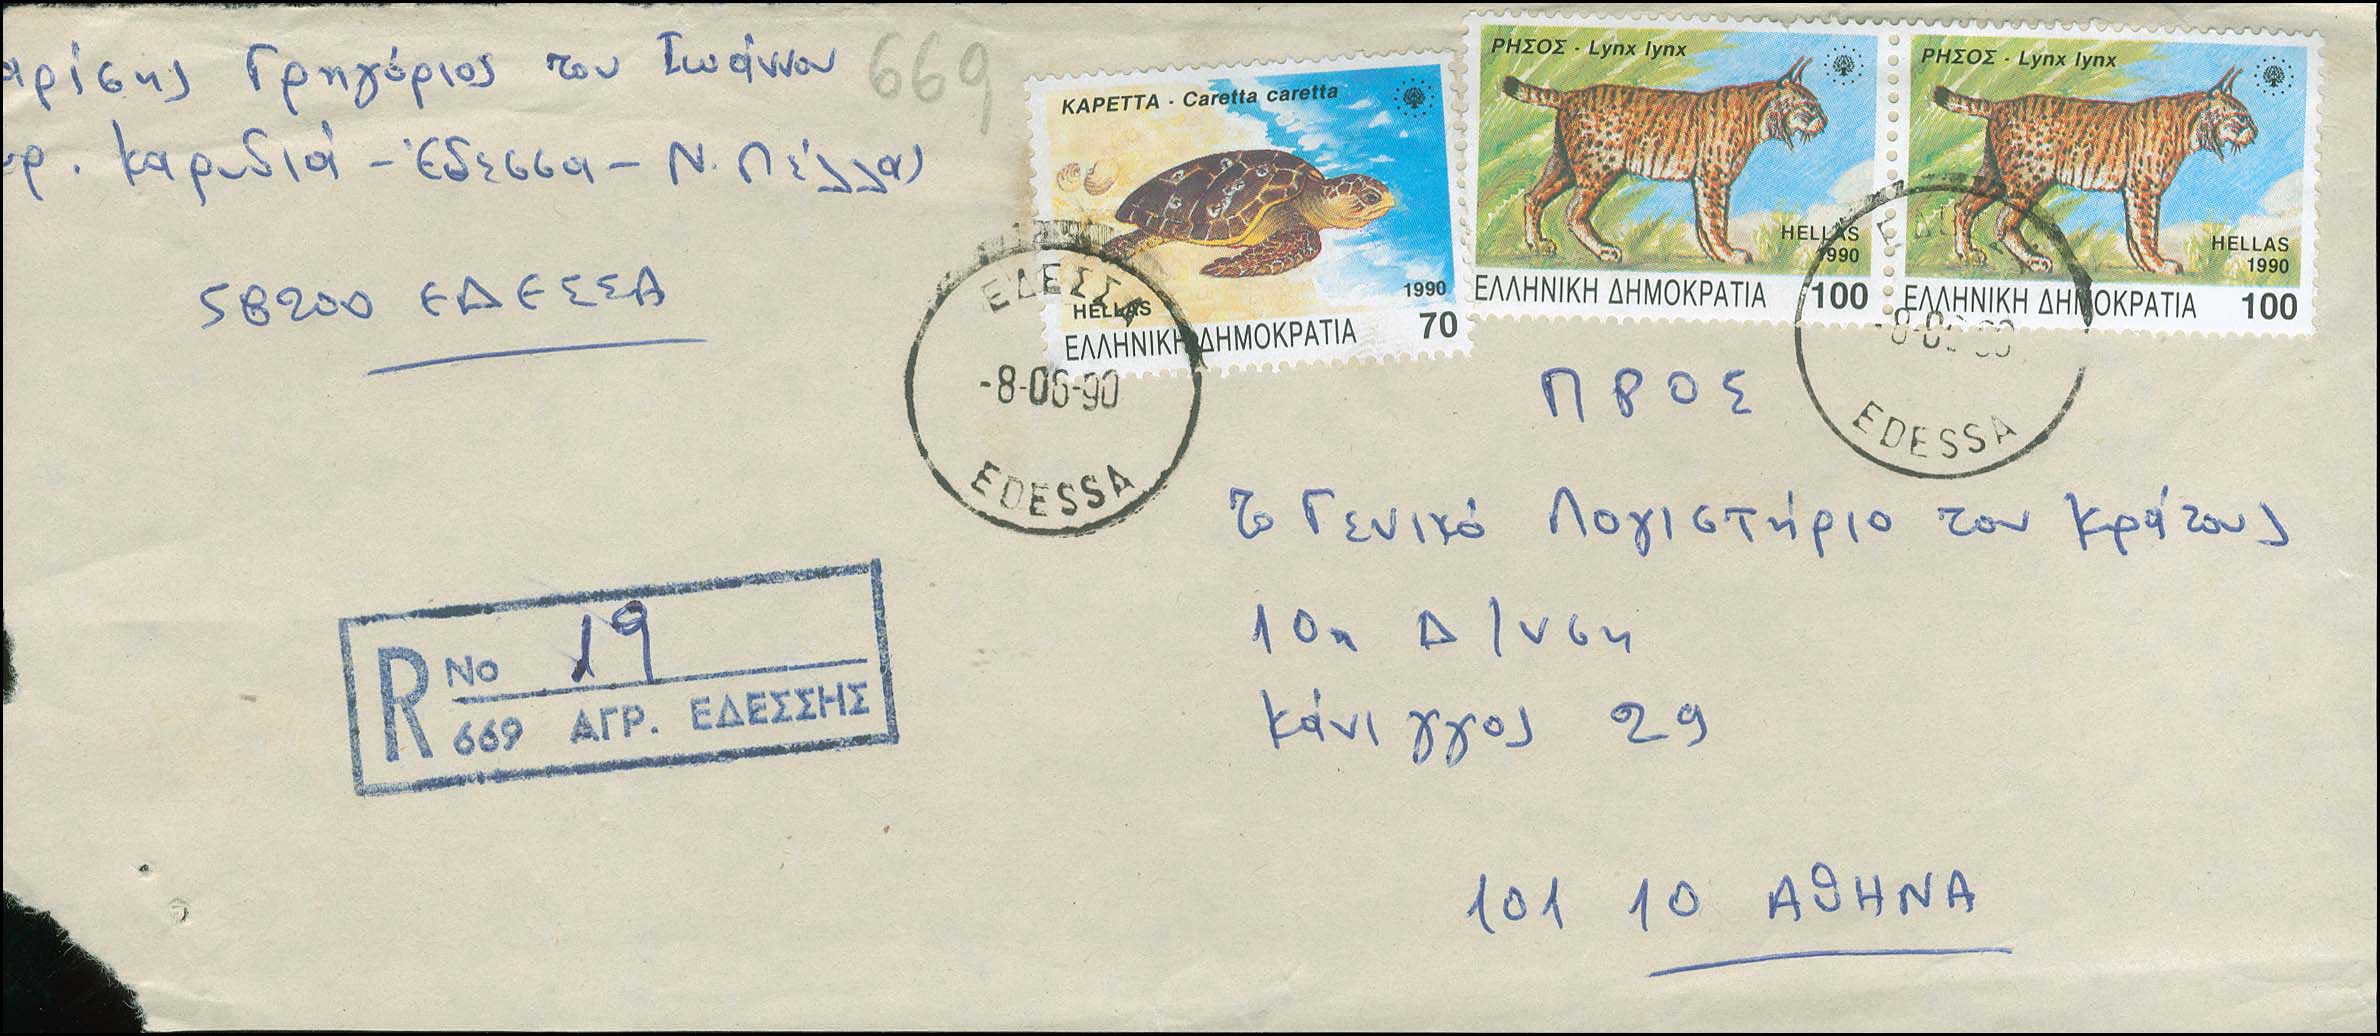 αρίσης Γρηγόριος του Ιωάννου
669
υρ. Καρυδιά - Έδεσσα - Ν. Πέλλας
58200 ΕΔΕΣΣΑ
ΚΑΡΕΤΤΑ - Caretta caretta
HELLAS
1990
ΕΛΛΗΝΙΚΗ ΔΗΜΟΚΡΑΤΙΑ 70
ΡΗΣΟΣ - Lynx lynx
HELLAS
1990
ΕΛΛΗΝΙΚΗ ΔΗΜΟΚΡΑΤΙΑ 100
ΡΗΣΟΣ - Lynx lynx
HELLAS
1990
ΕΛΛΗΝΙΚΗ ΔΗΜΟΚΡΑΤΙΑ 100
ΕΔΕΣΣΑ
-8-06-90
EDESSA
-8-06-90
EDESSA
ΠΡΟΣ
το Γενικό Λογιστήριο του Κράτους
10η Δ/νση
Κάνιγγος 29
101 10 ΑΘΗΝΑ
R No 19
669 ΑΓΡ. ΕΔΕΣΣΗΣ